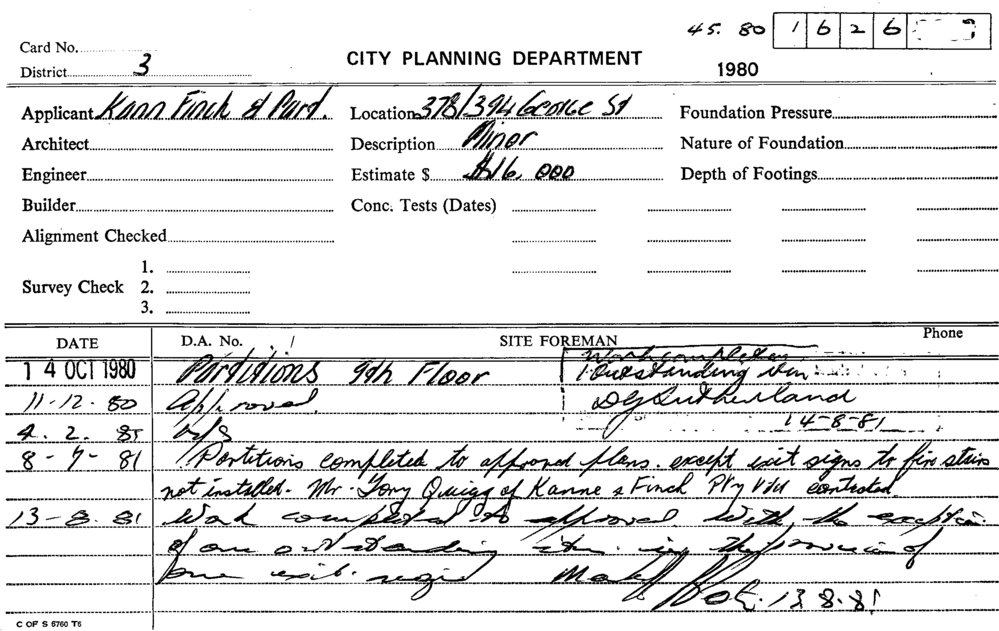 45. 80 1626
Card No.
District 3
CITY PLANNING DEPARTMENT
1980
Applicant Kann Finch & Part. Location 378/394 George St Foundation Pressure
Architect Description Minor Nature of Foundation
Engineer Estimate $ $16,000 Depth of Footings
Builder Conc. Tests (Dates)
Alignment Checked
1.
Survey Check 2.
3.
DATE D.A. No. SITE FOREMAN Phone
Work completed
14 OCT 1980 Partitions 9th Floor Outstanding
11-12-80 Approved. Sutherland
14-8-81
4.2.81 N/S
8-7-81 Partitions completed to approved plans. except exit signs to fire stairs
not installed. Mr. Tony Quigg of Kanne & Finch Pty contacted.
13-8.81 Work completed as approved with the exception
of one outstanding item. the provision of
one exit.
13.8.81
C OF S 6760 T6